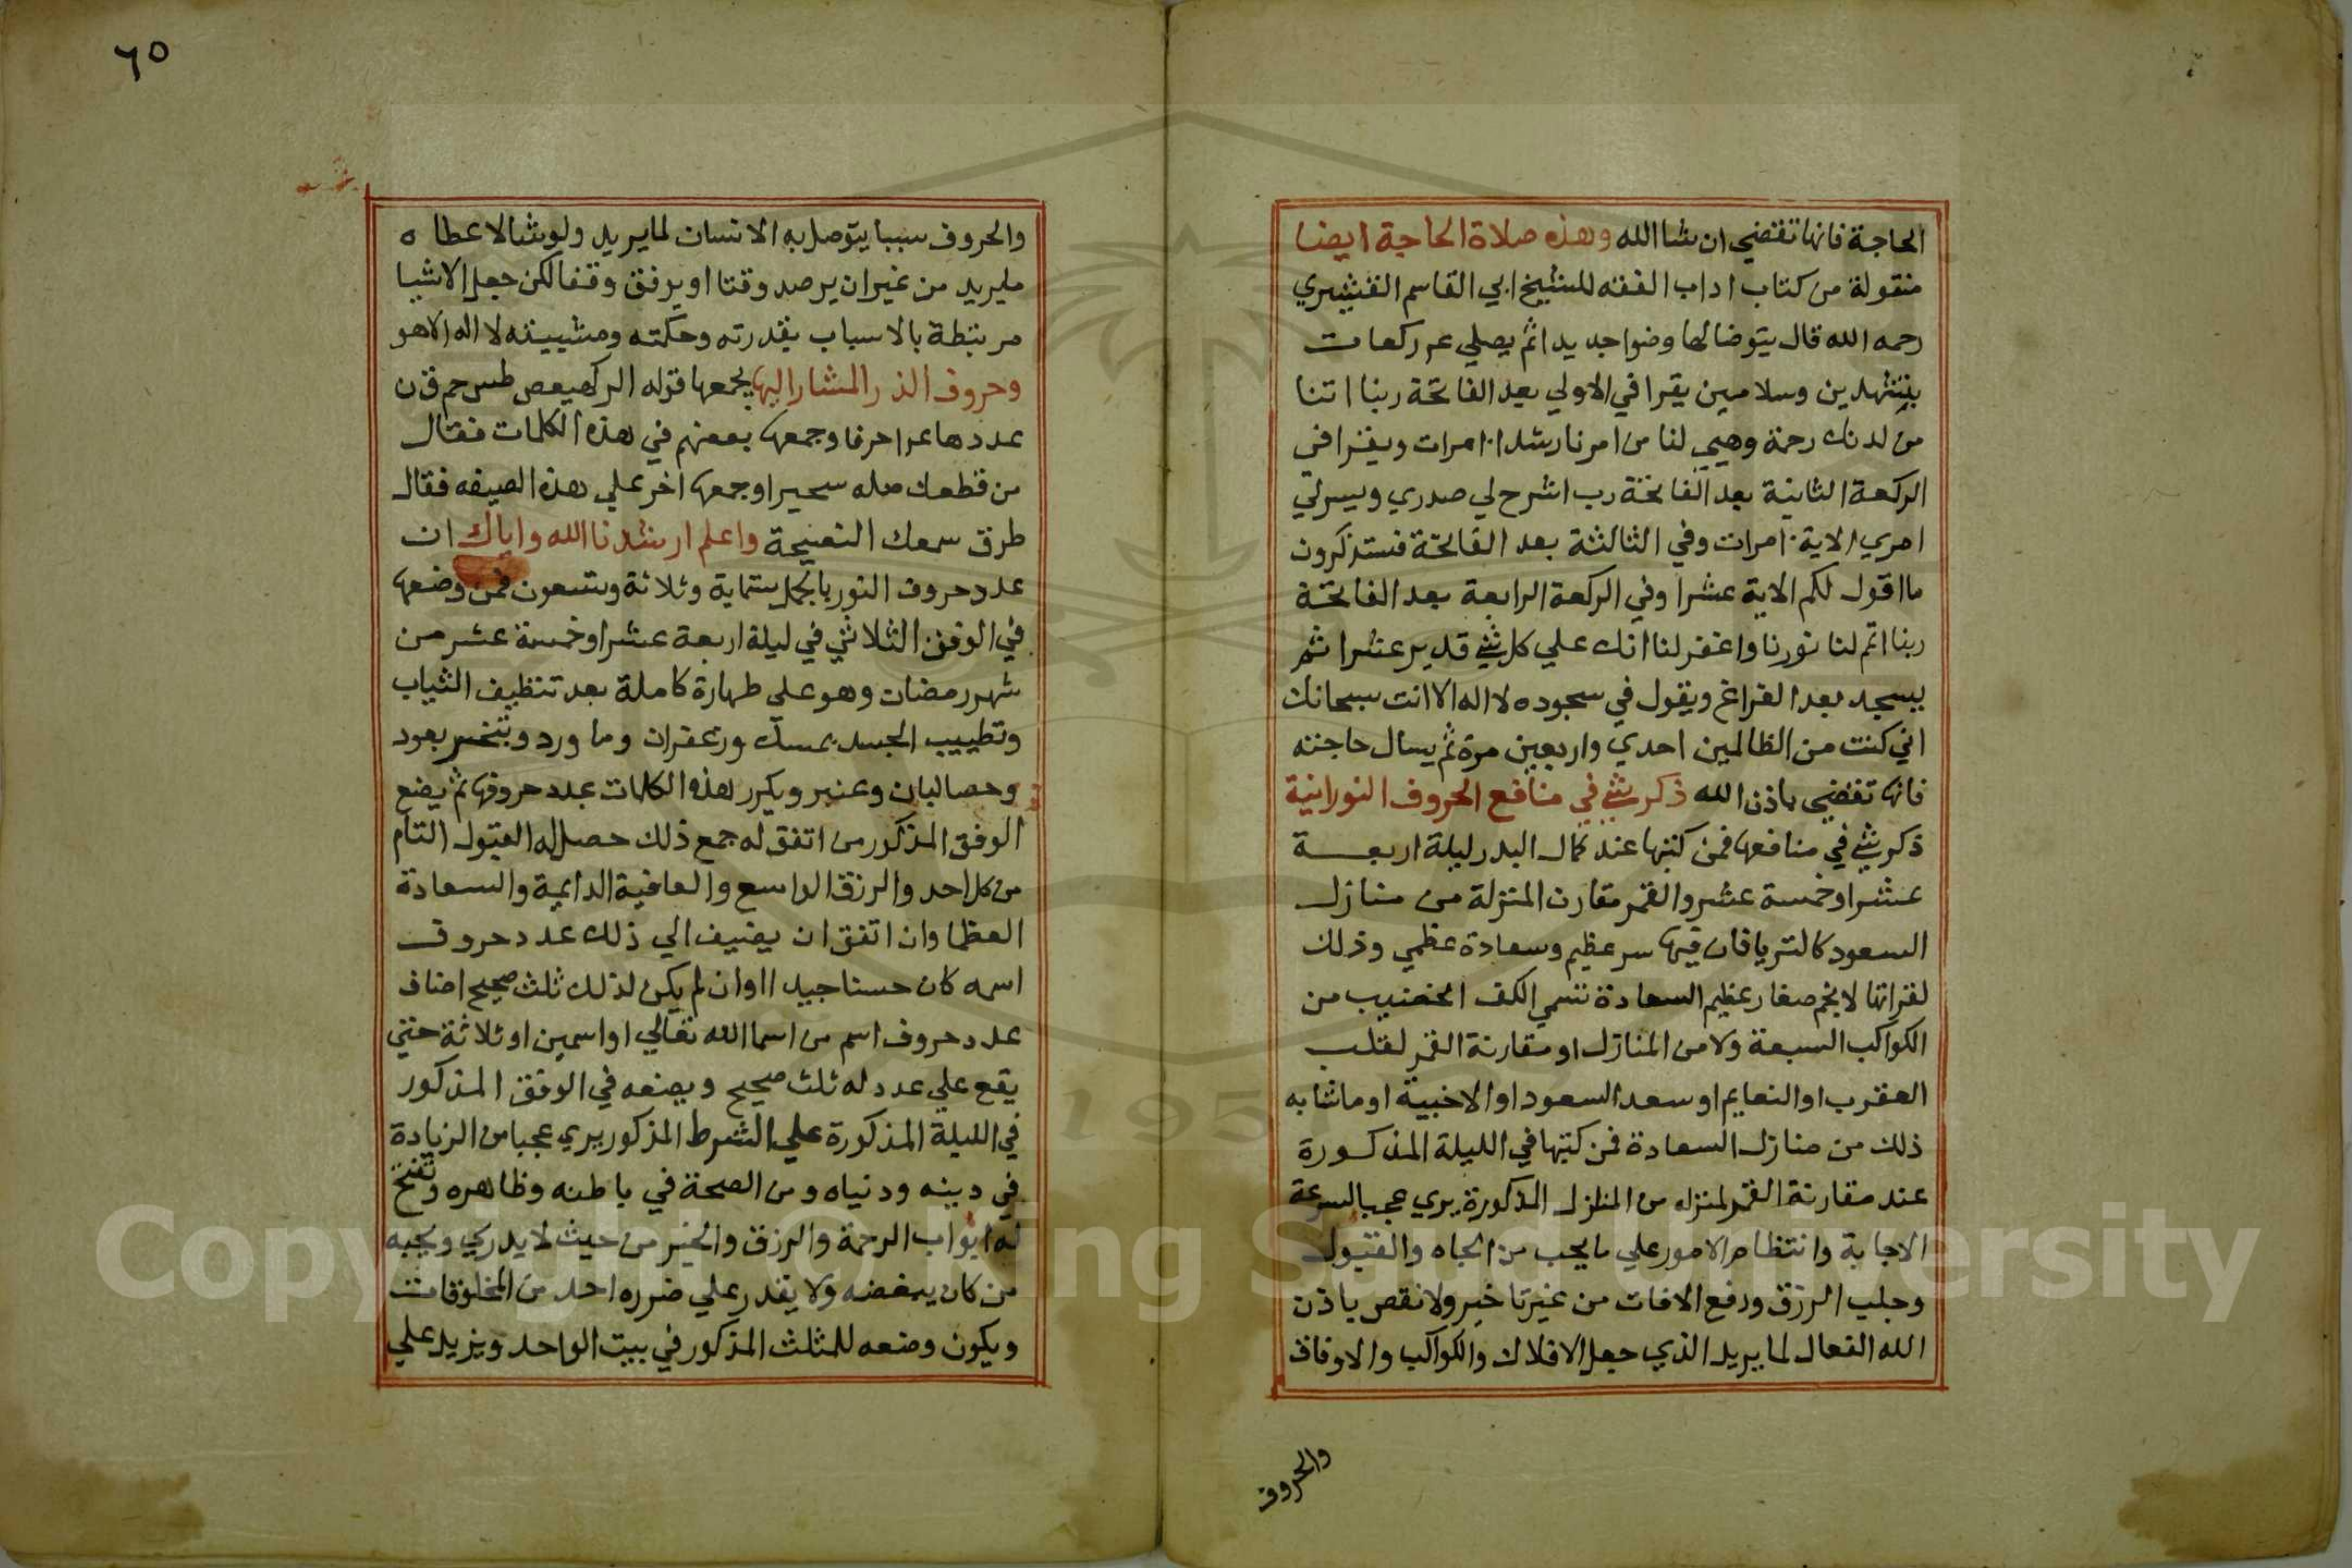 الحاجة فانها تقتضي ان شا الله وهذه صلاة الحاجة ايضا
منقولة من كتاب اداب الفقه للشيخ ابي القاسم القشيري
رحمه الله قال يتوضا لها وضوا جديدا ثم يصلي ركعات
بتشهدين وسلامين يقرا في الاولي بعد الفاتحة ربنا اتنا
من لدنك رحمة وهيي لنا من امرنا رشدا ١٠ مرات ويقرا في
الركعة الثانية بعد الفاتحة رب اشرح لي صدري ويسر لي
امري الاية ١٠ مرات وفي الثالثة بعد الفاتحة فستذكرون
ما اقول لكم الاية عشرا وفي الركعة الرابعة بعد الفاتحة
ربنا اتم لنا نورنا واغفر لنا انك علي كل شي قدير عشرا ثم
يسجد بعد الفراغ ويقول في سجوده لا اله الا انت سبحانك
اني كنت من الظالمين احدي واربعين مرة ثم يسال حاجته
فانها تقضي باذن الله ذكر شي في منافع الحروف النورانية
ذكر شي في منافعها فمن كتبها عند كمال البدر ليلة اربعة
عشر او خمسة عشر والقمر مقارن المنزلة من منازل
السعود كالثريا فان فيها سر عظيم وسعادة عظمي وذلك
لقرانها لانجم صغار عظيم السعادة تسمي الكف الخضيب من
الكواكب السبعة ولا من المنازل او مقارنة القمر لقلب
العقرب او النعايم او سعد السعود او الاخبية او ما شابه
ذلك من منازل السعادة فمن كتبها في الليلة المذكورة
عند مقارنة القمر لمنزله من المنازل المذكورة يري عجبا لسرعة
الاجابة وانتظام الامور علي ما يحب من الجاه والقبول
وجلب الرزق ودفع الافات من غير تاخير ولا نقص باذن
الله الفعال لما يريد الذي جعل الافلاك والكواكب والاوفاق
والحروف
٦٥
والحروف سببا يتوصل به الانسان لما يريد ولو شا لاعطاه
ما يريد من غير ان يرصد وقتا او يرفق وقفا لكن جعل الاشيا
مرتبطة بالاسباب بقدرته وحكمته ومشييته لا اله الا هو
وحروف المشار اليها يجمعها قوله الر كهيعص طس حم ق ن
عددها حرفا وجمعها بعضهم في هذه الكلمات فقال
من قطعك صله سحيرا وجمعها اخر علي هذه الصيغه فقال
طرق سمعك النصيحة واعلم ارشدنا الله واياك ان
عدد حروف النور بالجمل ستماية وثلاثة وتسعون فمن وضعها
في الوفق الثلاثي في ليلة اربعة عشر او خمسة عشر من
شهر رمضان وهو علي طهارة كاملة بعد تنظيف الثياب
وتطييب الجسد بمسك وزعفران وما ورد وتبخر بعود
وحصالبان وعنبر ويكرر هذه الكلمات عدد حروفها ثم يضع
الوفق المذكور من اتفق له جمع ذلك حصل له القبول التام
من كل احد والرزق الواسع والعافية الدايمة والسعادة
العظما وان اتفق ان يضيف الي ذلك عدد حروف
اسمه كان حسنا جيدا وان لم يكن لذلك ثلث صحيح اضاف
عدد حروف اسم من اسما الله تعالي او اسمين او ثلاثة حتي
يقع علي عدد له ثلث صحيح ويضعه في الوفق المذكور
في الليلة المذكورة علي الشرط المذكور يري عجبا من الزيادة
في دينه ودنياه ومن الصحة في باطنه وظاهره وتفتح
له ابواب الرحمة والرزق والخير من حيث لا يدري ويحبه
من كان يبغضه ولا يقدر علي ضرره احد من المخلوقات
ويكون وضعه للمثلث المذكور في بيت الواحد ويزيد علي
Copyright © King Saud University
1957